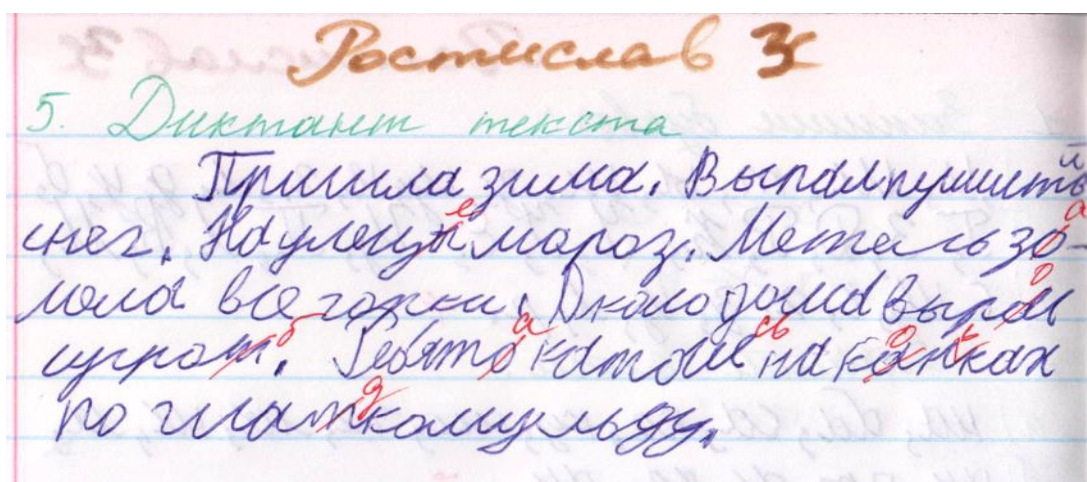 Ростислав 3к
5. Диктант текста
Пришла зима. Выпал пушисть
снег. На улецы мароз. Метель зо-
мола все горки. Около дома вырас
сугроп. Ребято катали на канках
по глаткому льду.